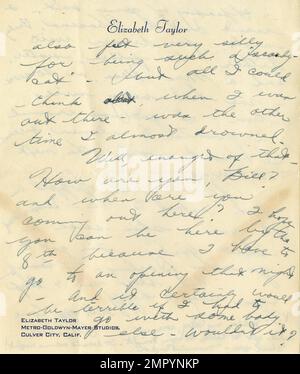 Elizabeth Taylor
also felt very silly
for being such a "scaredy
cat" - but all I could
think about, when I was
out there - was the other
time I almost drowned.
Well enough of that -
How are you, Bill?
and when are you
coming out here? I hope
you can be here by the
8th because I have to
go to an opening that night
- and it certainly would
be terrible if I had to
go with some body
else - wouldn't it?
ELIZABETH TAYLOR
METRO-GOLDWYN-MAYER STUDIOS,
CULVER CITY, CALIF.
alamy
Image ID: 2MPYNKP
www.alamy.com